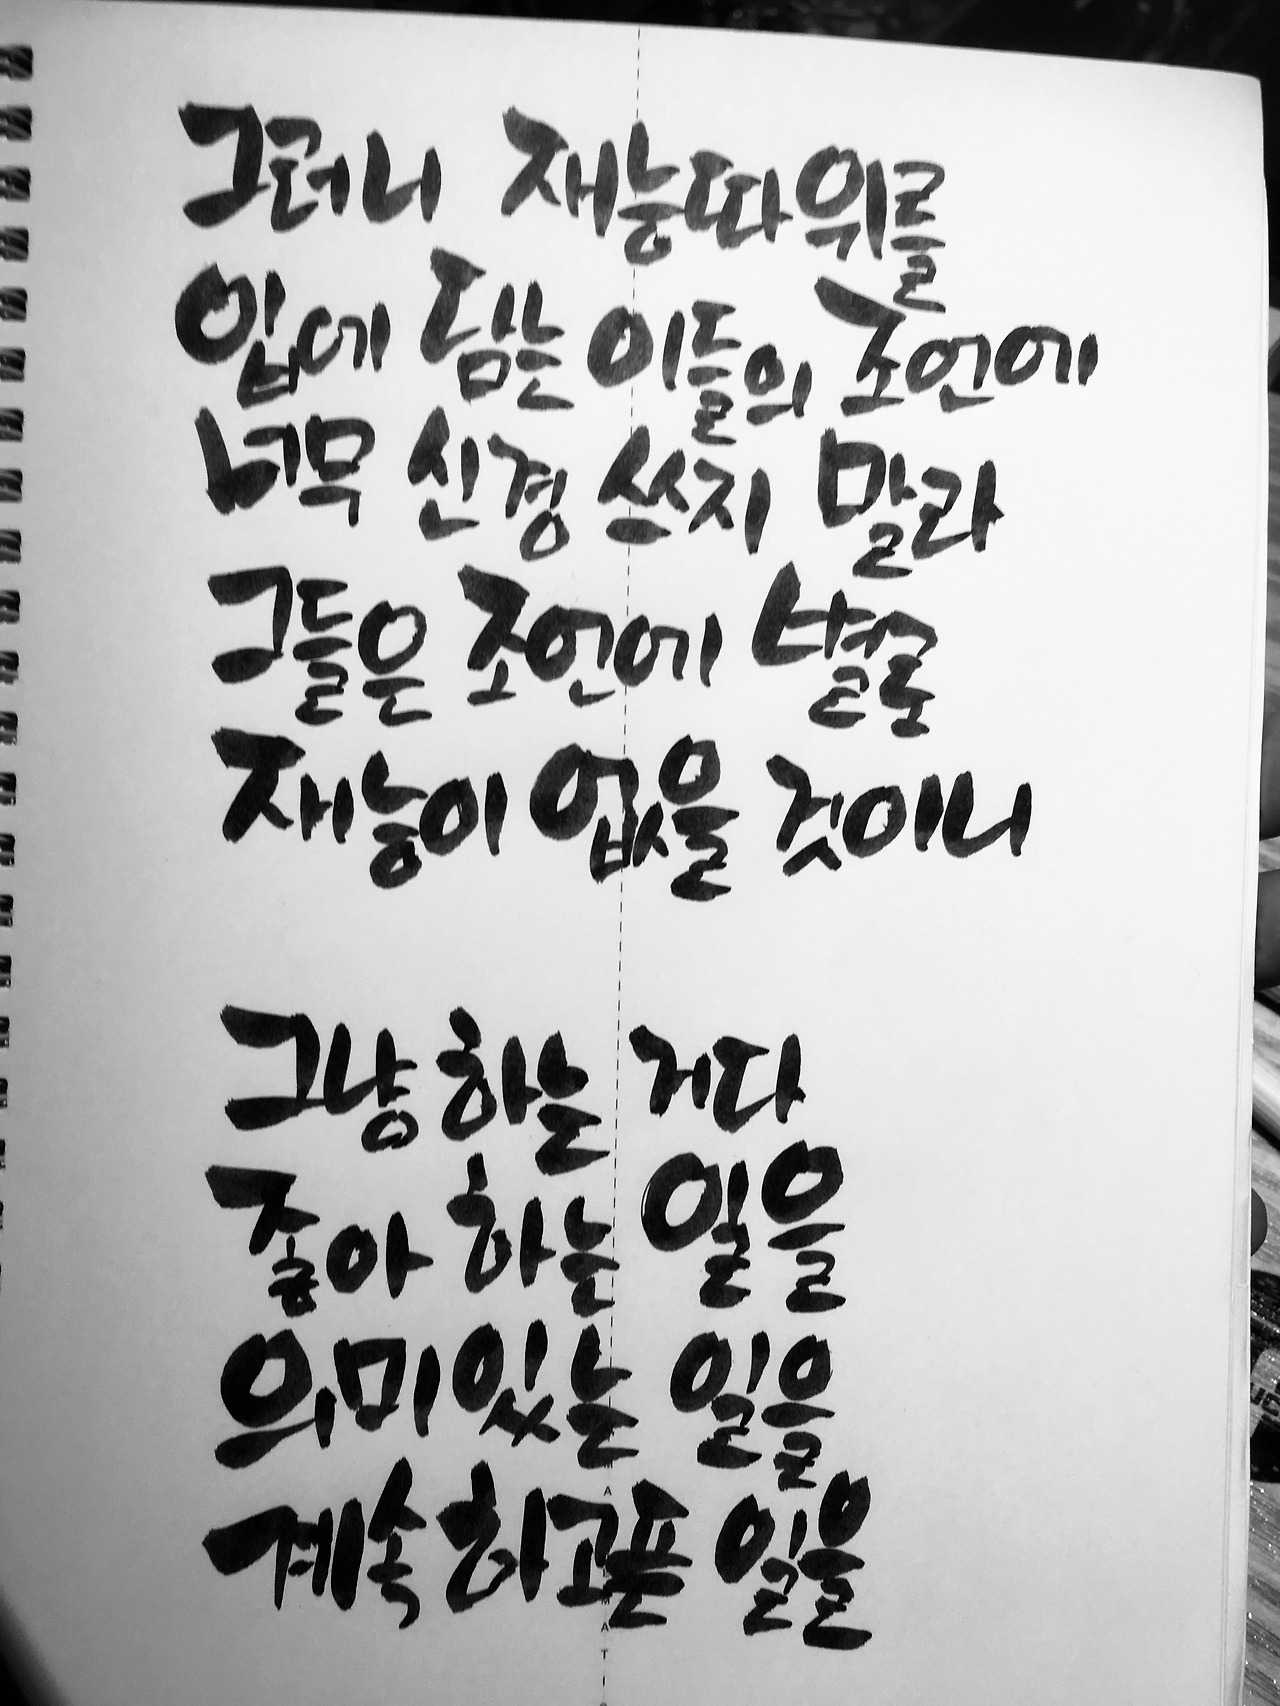 그러니 재능따위를
입에 담는 이들의 조언에
너무 신경 쓰지 말라
그들은 조언에 별로
재능이 없을 것이니
그냥 하는 거다
좋아 하는 일을
의미있는 일을
계속하고픈 일을